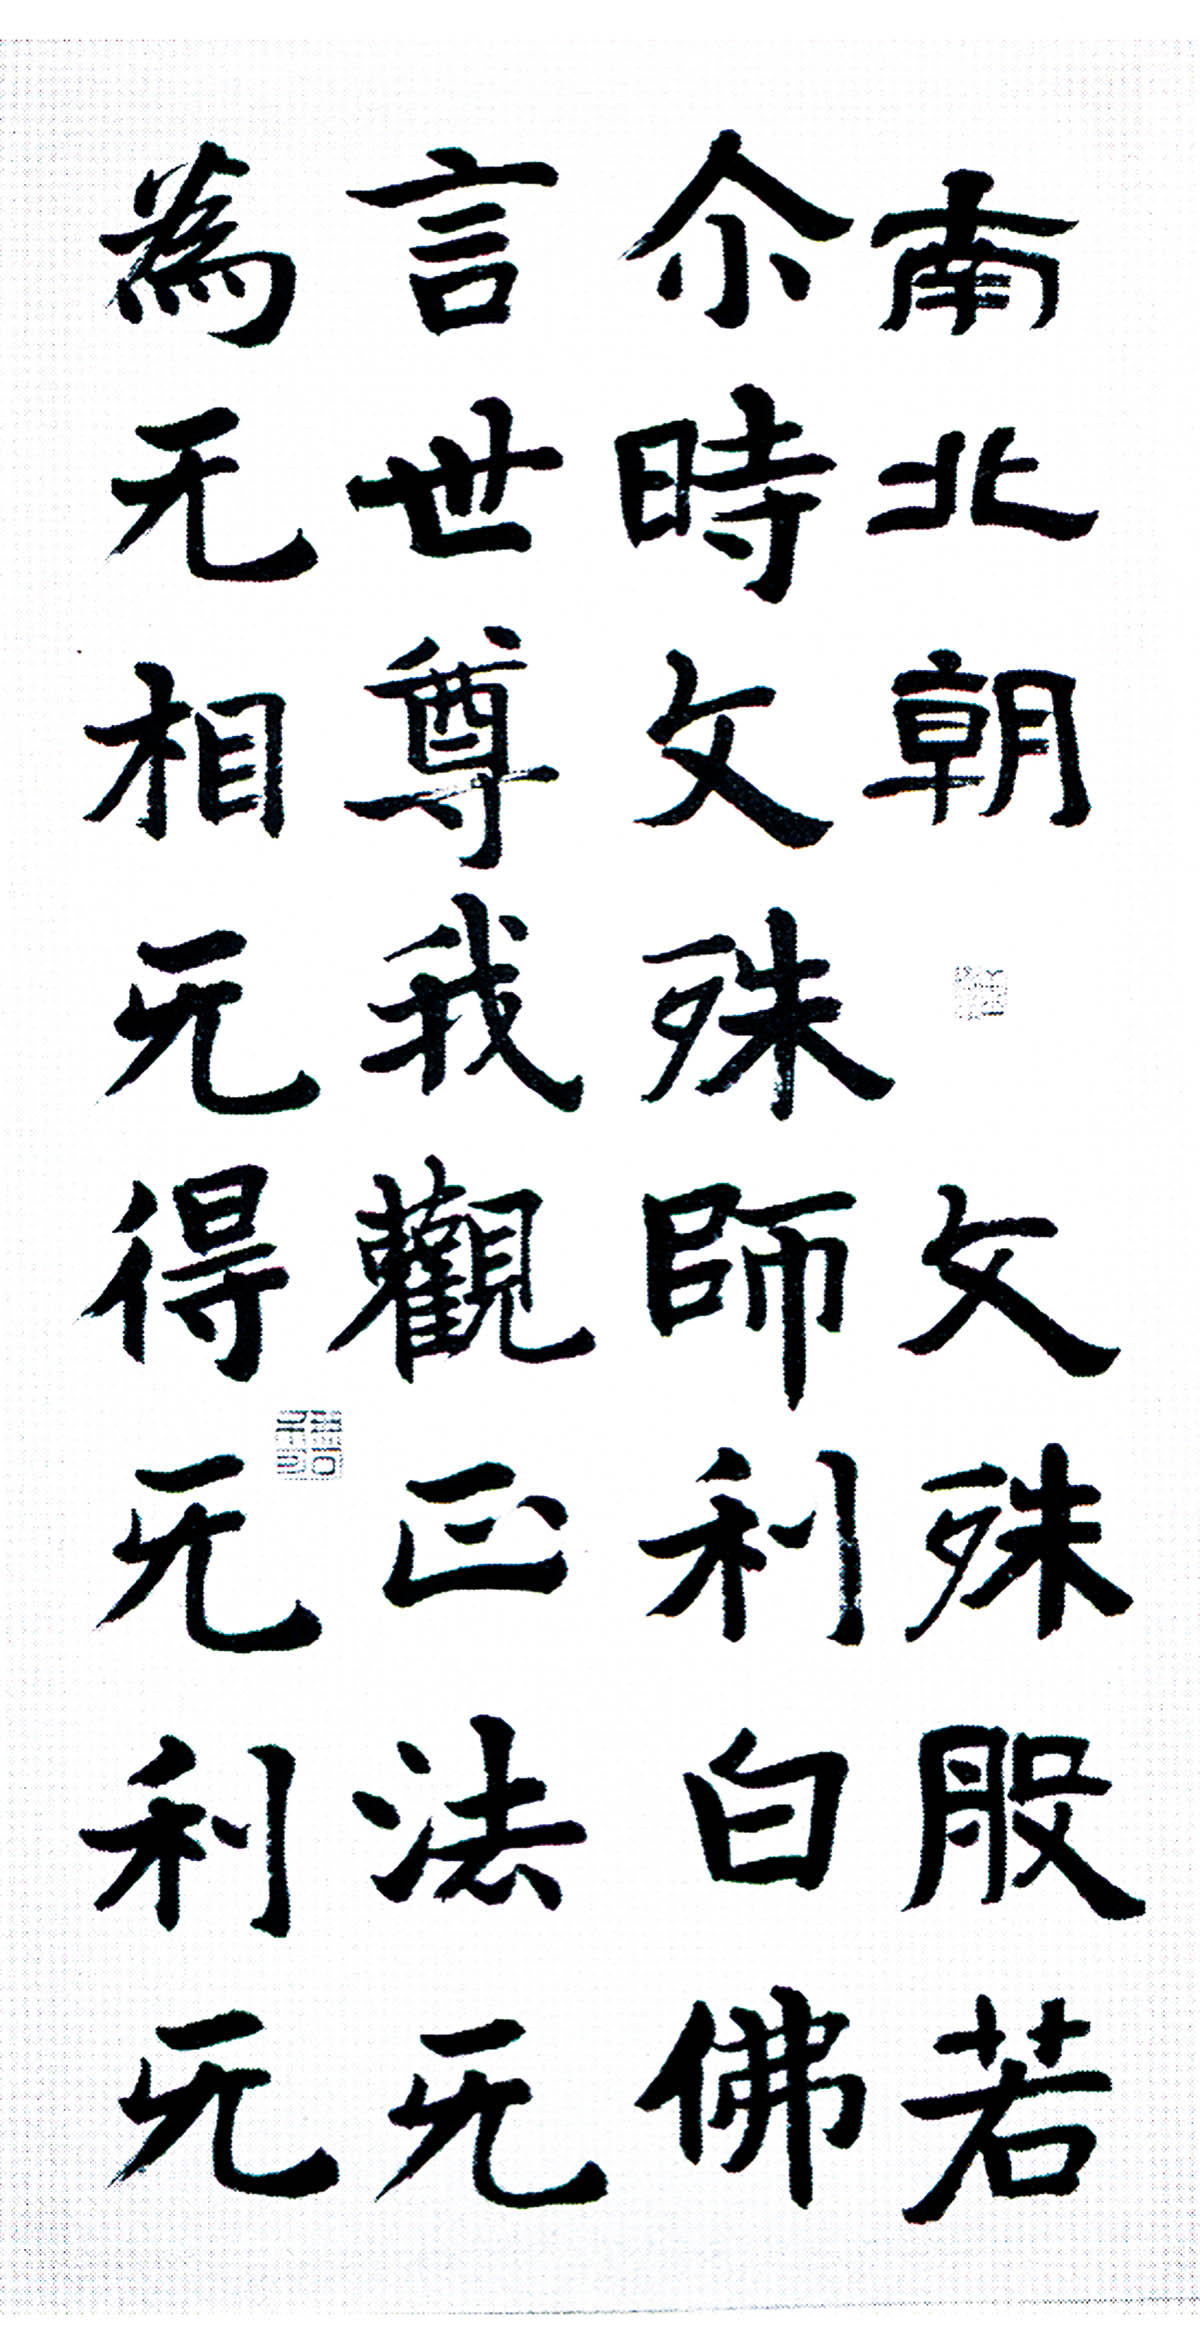 南北朝 文殊般若
尒時文殊師利白佛
言世尊我觀正法无
為无相无得无利无